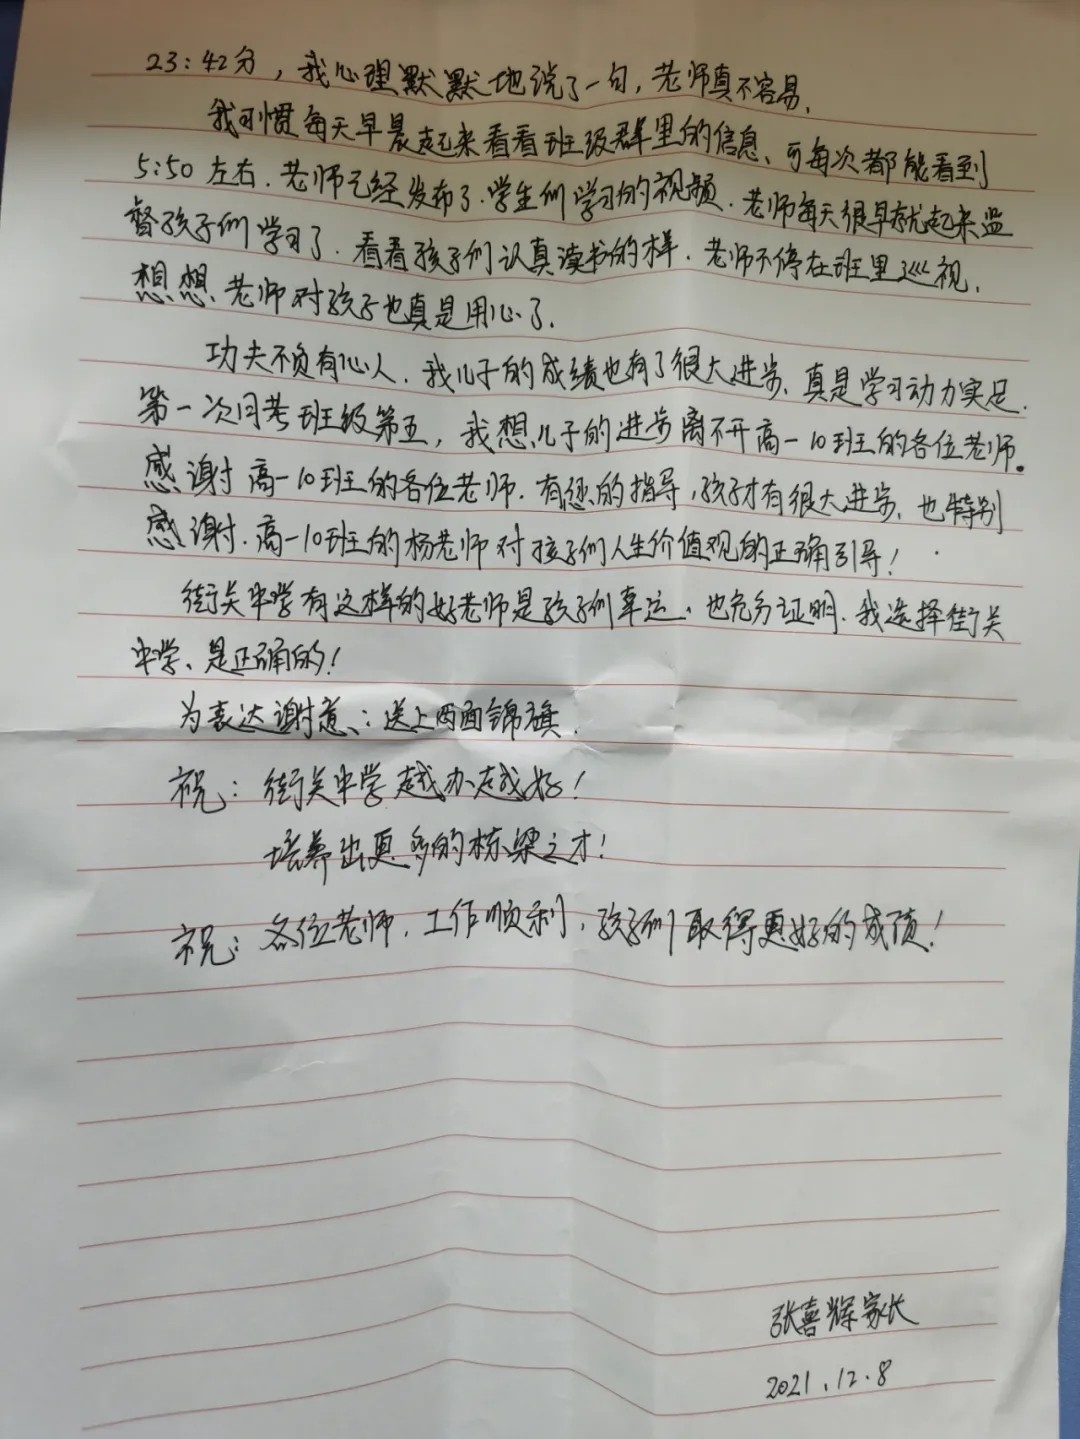 23:42分，我心理默默地说了一句，老师真不容易.
我习惯每天早晨起来看看班级群里的信息、可每次都能看到
5:50左右.老师已经发布了.学生们学习的视频.老师每天很早就起来监
督孩子们学习了.看看孩子们认真读书的样.老师不停在班里巡视.
想想老师对孩子也真是用心了.
功夫不负有心人.我儿子的成绩也有了很大进步、真是学习动力实足.
第一次月考班级第五，我想儿子的进步离不开高一10班的各位老师。
感谢高一10班的各位老师.有您的指导,孩子才有很大进步、也特别
感谢.高一10班的杨老师对孩子们人生价值观的正确引导!
街关中学有这样的好老师是孩子们幸运、也充分证明.我选择街关
中学、是正确的!
为表达谢意：送上两面锦旗.
祝：街关中学越办越好!
培养出更多的栋梁之才!
祝：各位老师.工作顺利,孩子们取得更好的成绩!
张喜辉家长
2021.12.8